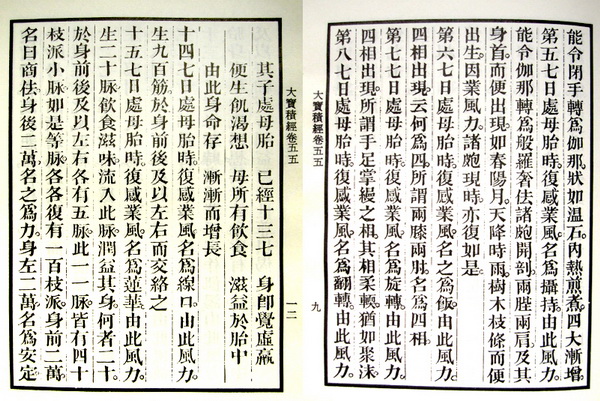 能令閉手轉爲伽那狀如温石。內熱煎煮。四大漸增。
第五七日處母胎時。復感業風。名爲攝持。由此風力。
能令伽那轉爲般羅奢佉。諸皰開剖。兩髀兩肩及其
身首而便出現。如春陽月。天降時雨。樹木枝條而便
出生。因業風力。諸皰現時。亦復如是。
第六七日處母胎時。復感業風。名之爲飯。由此風力。
四相出現。云何爲四。所謂兩膝兩肘。名爲四相。
第七七日處母胎時。復感業風。名爲旋轉。由此風力。
四相出現。所謂手足掌縵之相。其相柔輭。猶如聚沫。
第八七日處母胎時。復感業風。名爲翻轉。由此風力。
大寶積經卷五五
九
大寶積經卷五五
一二
其子處母胎 已經十三七 身卽覺虛羸
便生飢渴想 母所有飲食 滋益於胎中
由此身命存 漸漸而增長
十四七日處母胎時。復感業風。名爲線口。由此風力。
生九百筋。於身前後及以左右而交絡之。
十五七日處母胎時。復感業風。名爲蓮華。由此風力。
生二十脉。飲食滋味流入此脉。潤益其身。何者二十。
於身前後及以左右各有五脉。此一一脉皆有四十
枝派小脉。如是等脉。各各復有一百枝派。身前二萬。
名曰商佉。身後二萬。名之爲力。身左二萬。名爲安定。